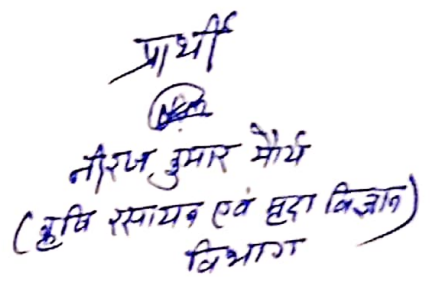 प्रार्थी
नीरज कुमार मौर्य
(कृषि रसायन एवं मृदा विज्ञान)
विभाग